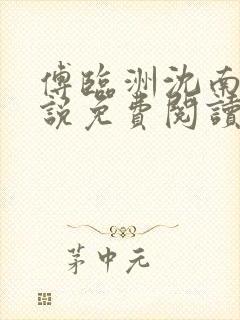 傅臨洲沈南
說免費閱讀
茅中元